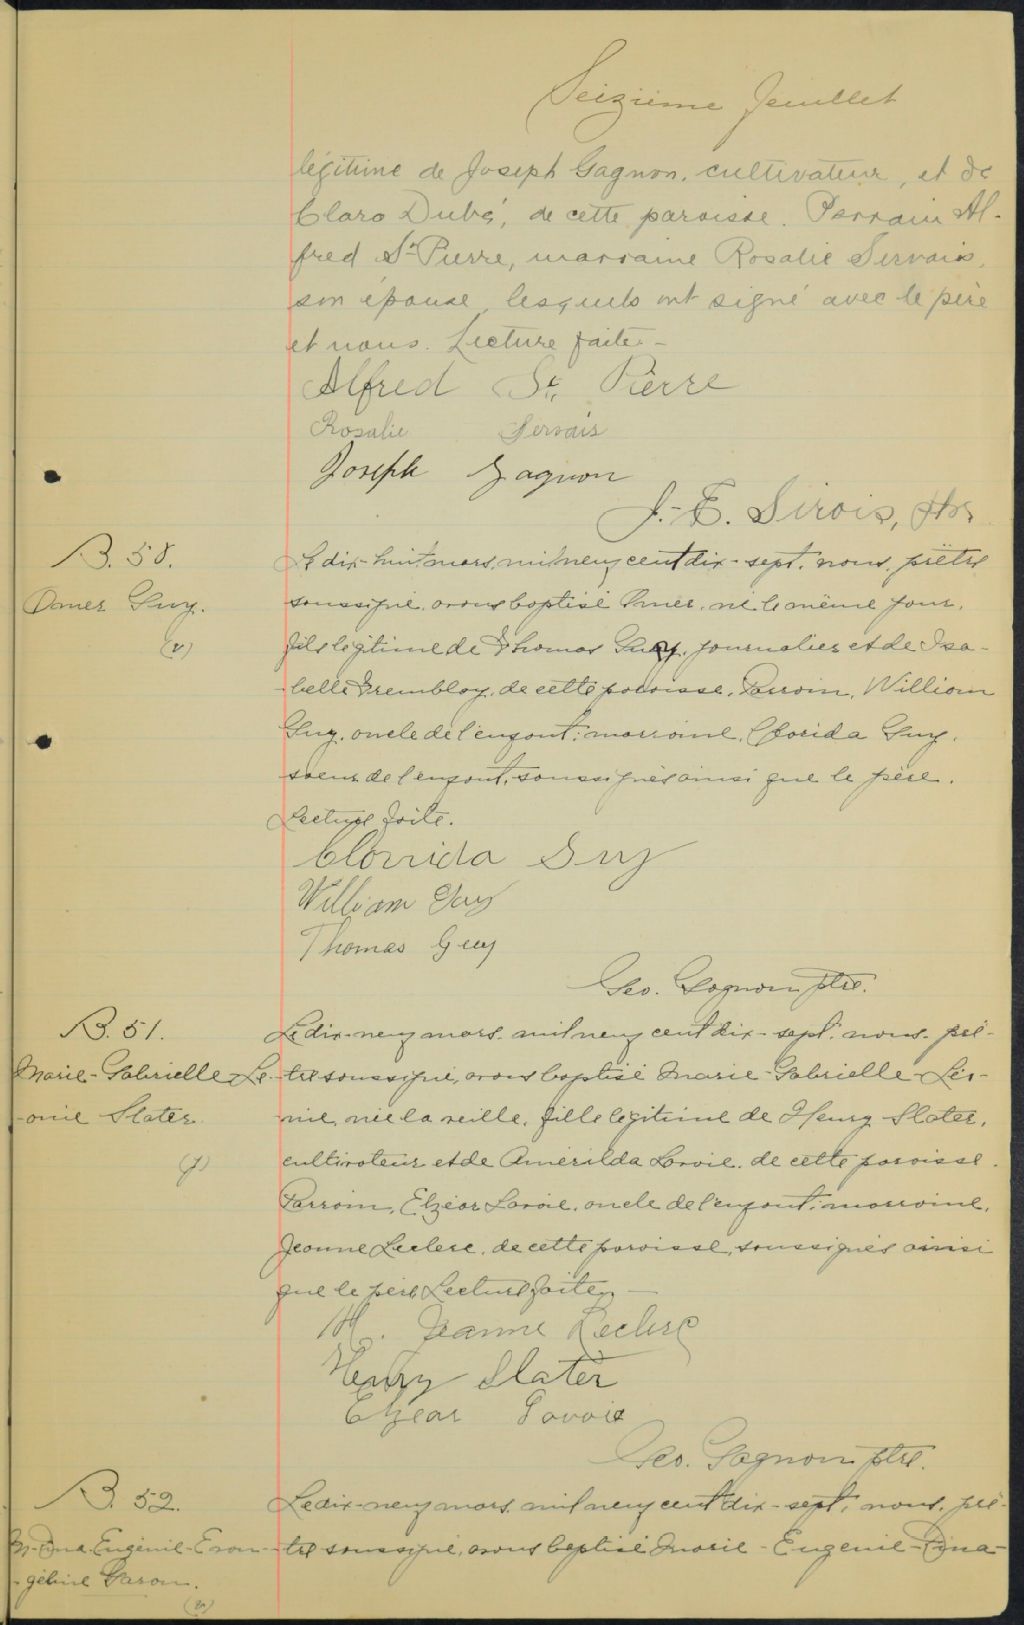 Seizième feuillet
légitime de Joseph Gagnon, cultivateur, et de
Clara Dubé, de cette paroisse. Parrain Al-
fred St-Pierre, marraine Rosalie Servais,
son épouse, lesquels ont signé avec le père
et nous. Lecture faite. -
Alfred St. Pierre
Rosalie Servais
Joseph Gagnon
J.-E. Sirois, ptre
B. 50.
Omer Guy.
Le dix-huit mars, mil neuf cent dix-sept, nous, prêtre
soussigné, avons baptisé Omer, né le même jour,
fils légitime de Thomas Guy, journalier et de Isa-
-belle Tremblay, de cette paroisse. Parrain, William
Guy, oncle de l'enfant; marraine, Clorida Guy,
soeur de l'enfant, soussignés ainsi que le père.
Lecture faite.
Clorrida Guy
William Guy
Thomas Guy
Geo. Gagnon ptre.
B. 51.
Marie-Gabrielle-Lé-
-onie Slater.
Le dix-neuf mars, mil neuf cent dix-sept, nous, prê-
-tre soussigné, avons baptisé Marie-Gabrielle-Léo-
nie, née la veille, fille légitime de Henry Slater,
cultivateur et de Amérilda Lavoie, de cette paroisse.
Parrain, Elzéar Lavoie, oncle de l'enfant; marraine,
Jeanne Leclerc, de cette paroisse, soussignés ainsi
que le père. Lecture faite. —
M. Jeanne Leclerc
Henry Slater
Elzear Lavoie
Geo. Gagnon ptre.
B. 52.
M-Dina-Eugénie-Evan-
-géline Garon.
Le dix-neuf mars, mil neuf cent dix-sept, nous, prê-
-tre soussigné, avons baptisé Marie-Eugénie-Dina-